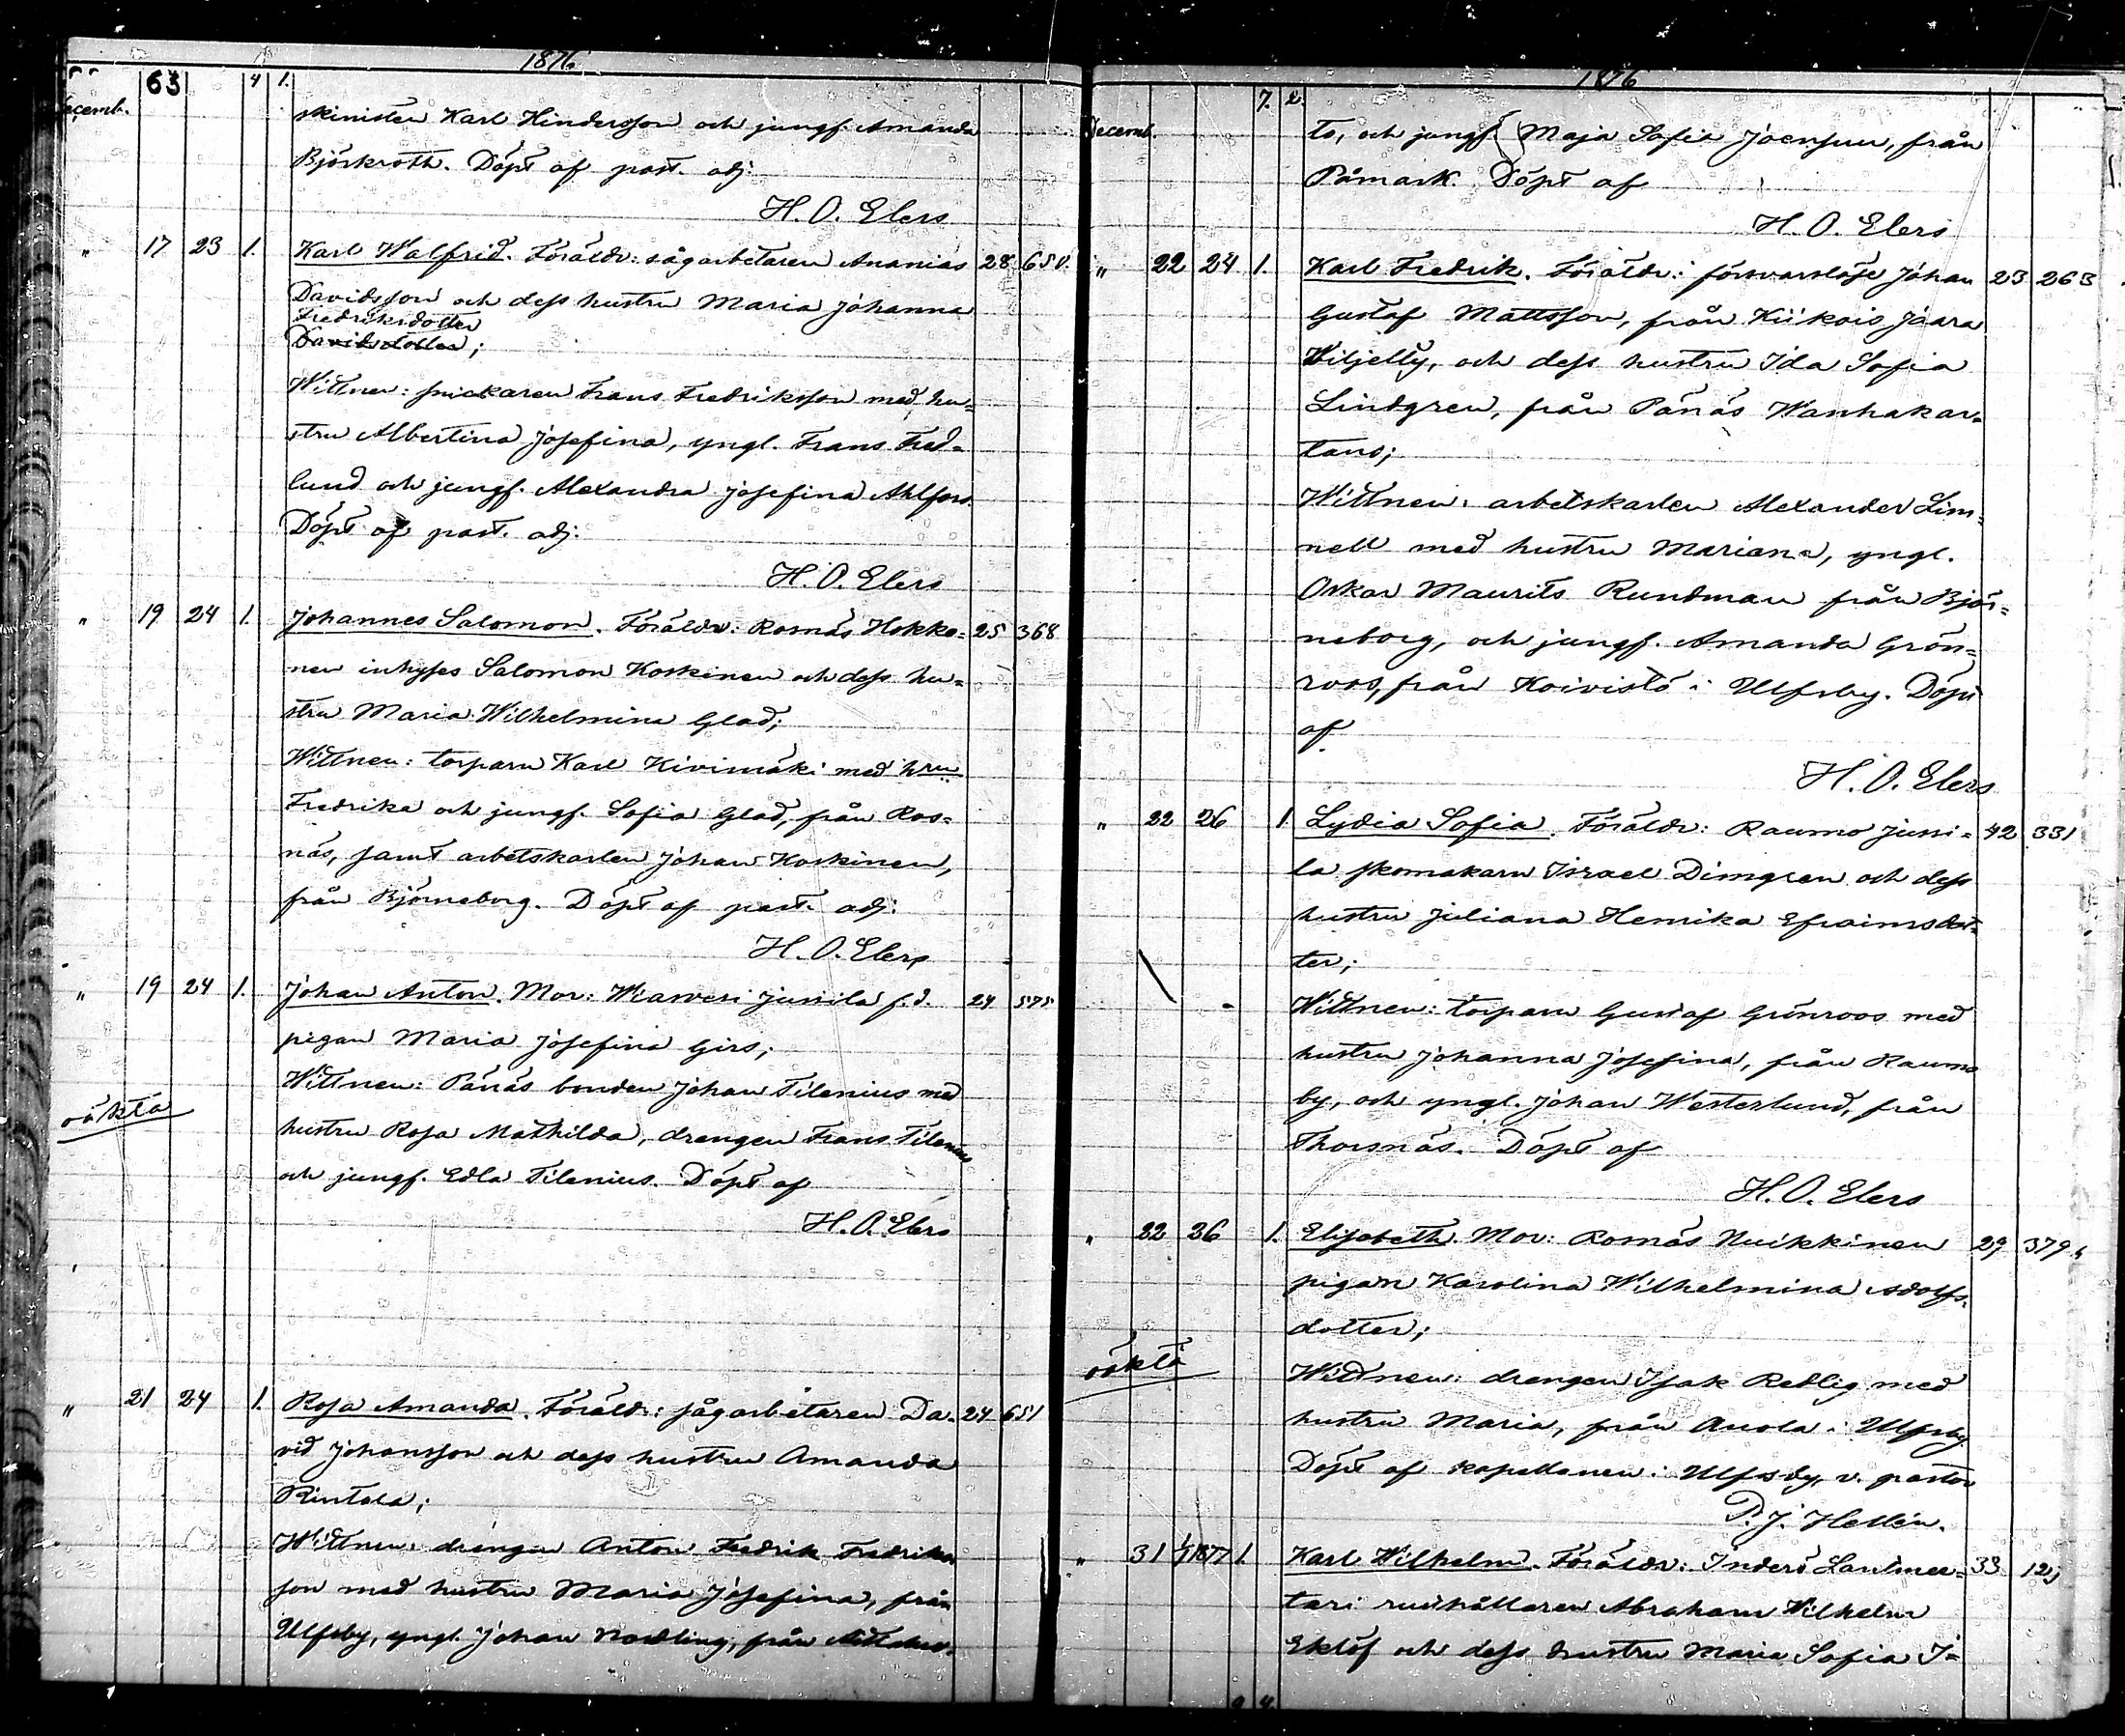 1876
63 4 1.
Decemb. skinisten Karl Hindersson och jungf. Amanda
Björkroth. Döpt af past. adj.
H. O. Elers
" 17 23 1. Karl Walfrid. Föräldr: sågarbetaren Ananias 28 650.
Davidsson och dess hustru Maria Johanna
Fredriksdotter
Davidsdotter;
Wittnen: snickaren Frans Fredriksson med hu=
stru Albertina Josefina, yngl. Frans Fred=
lund och jungf. Alexandra Josefina Ahlfors.
Döpt af past. adj.
H. O. Elers
" 19 24 1. Johannes Salomon. Föräldr: Rosnäs Hokko= 25 368
nen inhyses Salomon Koskinen och dess hu=
stru Maria Wilhelmina Glad;
Wittnen: torparn Karl Kivimäki med hru
Fredrika och jungf. Sofia Glad, från Ros=
näs, samt arbetskarlen Johan Koskinen,
från Björneborg. Döpt af past. adj.
H. O. Elers
" 19 24 1. Johan Anton. Mor: Jussila f.d. 24 575
pigan Maria Josefina Girs;
Wittnen: Pänäs bonden Johan Tilenius med
oäkta
hustru Rosa Mathilda, drengen Frans Tilenius
och jungf. Edla Tilenius. Döpt af
H. O. Elers
" 21 24 1. Rosa Amanda. Föräldr: sågarbetaren Da= 24 651
vid Johansson och dess hustru Amanda
Rintala;
Wittnen: drengen Anton Fredrik Fredriks
son med hustru Maria Josefina, från
Ulfsby, yngl. Johan Nordling, från
1876
7. 2.
Decemb. to, och jungf. Maja Sofia Joensuu, från
Påmark. Döpt af
H. O. Elers
" 22 24 1. Karl Fredrik. Föräldr: försvarslöse Johan 23 263
Gustaf Mattsson, från Kiikois Jaara
Wiljelty, och dess hustru Ida Sofia
Lindgren, från Pänäs Wanhakar=
tano;
Wittnen: arbetskarlen Alexander Lim=
nell med hustru Mariana, yngl.
Oskar Maurits Rundman från Björ=
neborg, och jungf. Amanda Grön=
roos, från Koivistö i Ulfsby. Döpt
af
H. O. Elers
" 22 26 1. Lydia Sofia. Föräldr: Raumo Jussi= 42 331
la skomakarn Israel Dimgren och dess
hustru Juliana Henrika Efraimsdot=
ter;
Wittnen: torparn Gustaf Grönroos med
hustru Johanna Josefina, från Raumo
by, och yngl. Johan Westerlund, från
Thorsnäs. Döpt af
H. O. Elers
" 22 26 1. Elisabeth. Mor: Rosnäs Nuikkinen 29 379
pigan Karolina Wilhelmina Adolfs=
dotter;
oäkta
Wittnen: drengen Isak Redlig med
hustru Maria, från Anola i Ulfsby
Döpt af kapellanen i Ulfsby, v. pastor
P. J. Hellén.
" 31 1/1 1877 1. Karl Wilhelm. Föräldr: Inderö Santmee= 33 12
tari rusthållaren Abraham Wilhelm
Eklöf och dess hustru Maria Sofia I=